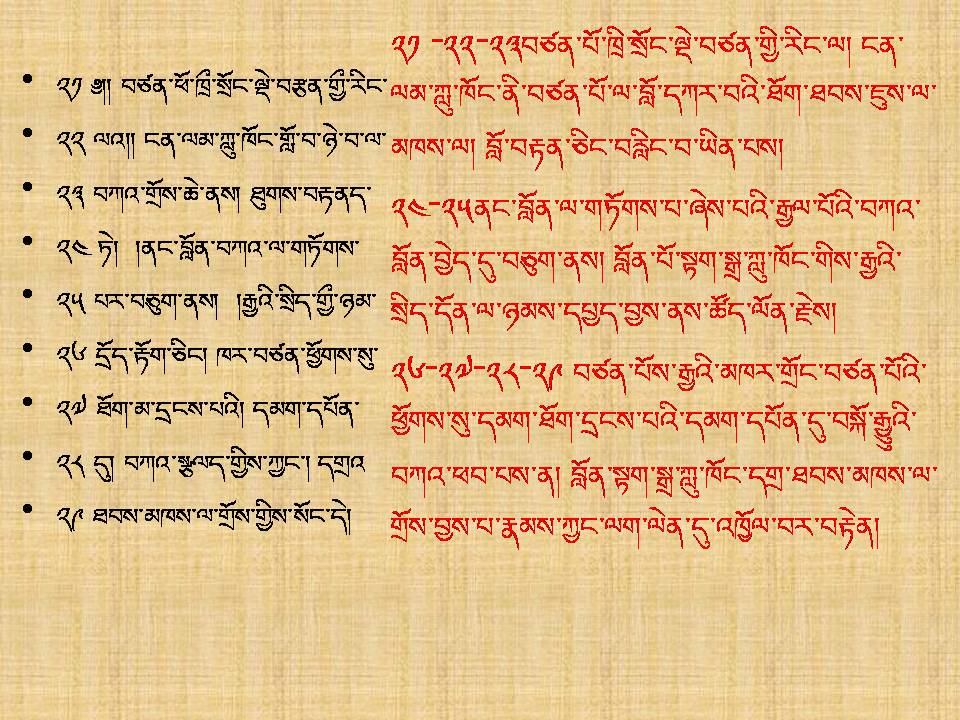 ༢༡ ༄།། བཙན་ཕོ་ཁྲི་སྲོང་ལྡེ་བརྩན་གྱི་རིང་
༢༢ ལའ།། ངན་ལམ་ཀླུ་ཁོང་གློ་བ་ཉེ་བ་ལ་
༢༣ བཀའ་གྲོས་ཆེ་ནས། ཐུགས་བརྟནད་
༢༤ ཏེ། །ནང་བློན་བཀའ་ལ་གཏོགས་
༢༥ པར་བཅུག་ནས། །རྒྱའི་སྲིད་གྱི་ཉམ་
༢༦ དྲོད་རྟོག་ཅིང། ཁར་བཙན་ཕྱོགས་སུ་
༢༧ ཐོག་མ་དྲངས་པའི། དམག་དཔོན་
༢༨ དུ། བཀའ་སྩལད་གྱིས་ཀྱང་། དགྲའ
༢༩ ཐབས་མཁས་ལ་གྲོས་གྱིས་སོང་དེ།
༢༡ -༢༢-༢༣བཙན་པོ་ཁྲི་སྲོང་ལྡེ་བཙན་གྱི་རིང་ལ། ངན་
ལམ་ཀླུ་ཁོང་ནི་བཙན་པོ་ལ་བློ་དཀར་བའི་ཐོག་ཐབས་ཇུས་ལ་
མཁས་ལ། བློ་བརྟན་ཅིང་བརླིང་བ་ཡིན་པས།
༢༤-༢༥ནང་བློན་ལ་གཏོགས་པ་ཞེས་པའི་རྒྱལ་པོའི་བཀའ་
བློན་བྱེད་དུ་བཅུག་ནས། བློན་པོ་སྟག་སྒྲ་ཀླུ་ཁོང་གིས་རྒྱའི་
སྲིད་དོན་ལ་ཉམས་དབྱད་བྱས་ནས་ཚོད་ལོན་རྗེས།
༢༦-༢༧-༢༨-༢༩ བཙན་པོས་རྒྱའི་མཁར་གྲོང་བཙན་པོའི་
ཕྱོགས་སུ་དམག་ཐོག་དྲངས་པའི་དམག་དཔོན་དུ་བསྐོ་རྒྱུའི་
བཀའ་ཕབ་པས་ན། བློན་སྟག་སྒྲ་ཀླུ་ཁོང་དགྲ་ཐབས་མཁས་ལ་
གྲོས་བྱས་པ་རྣམས་ཀྱང་ལག་ལེན་དུ་འཁྱོལ་བར་བརྟེན།